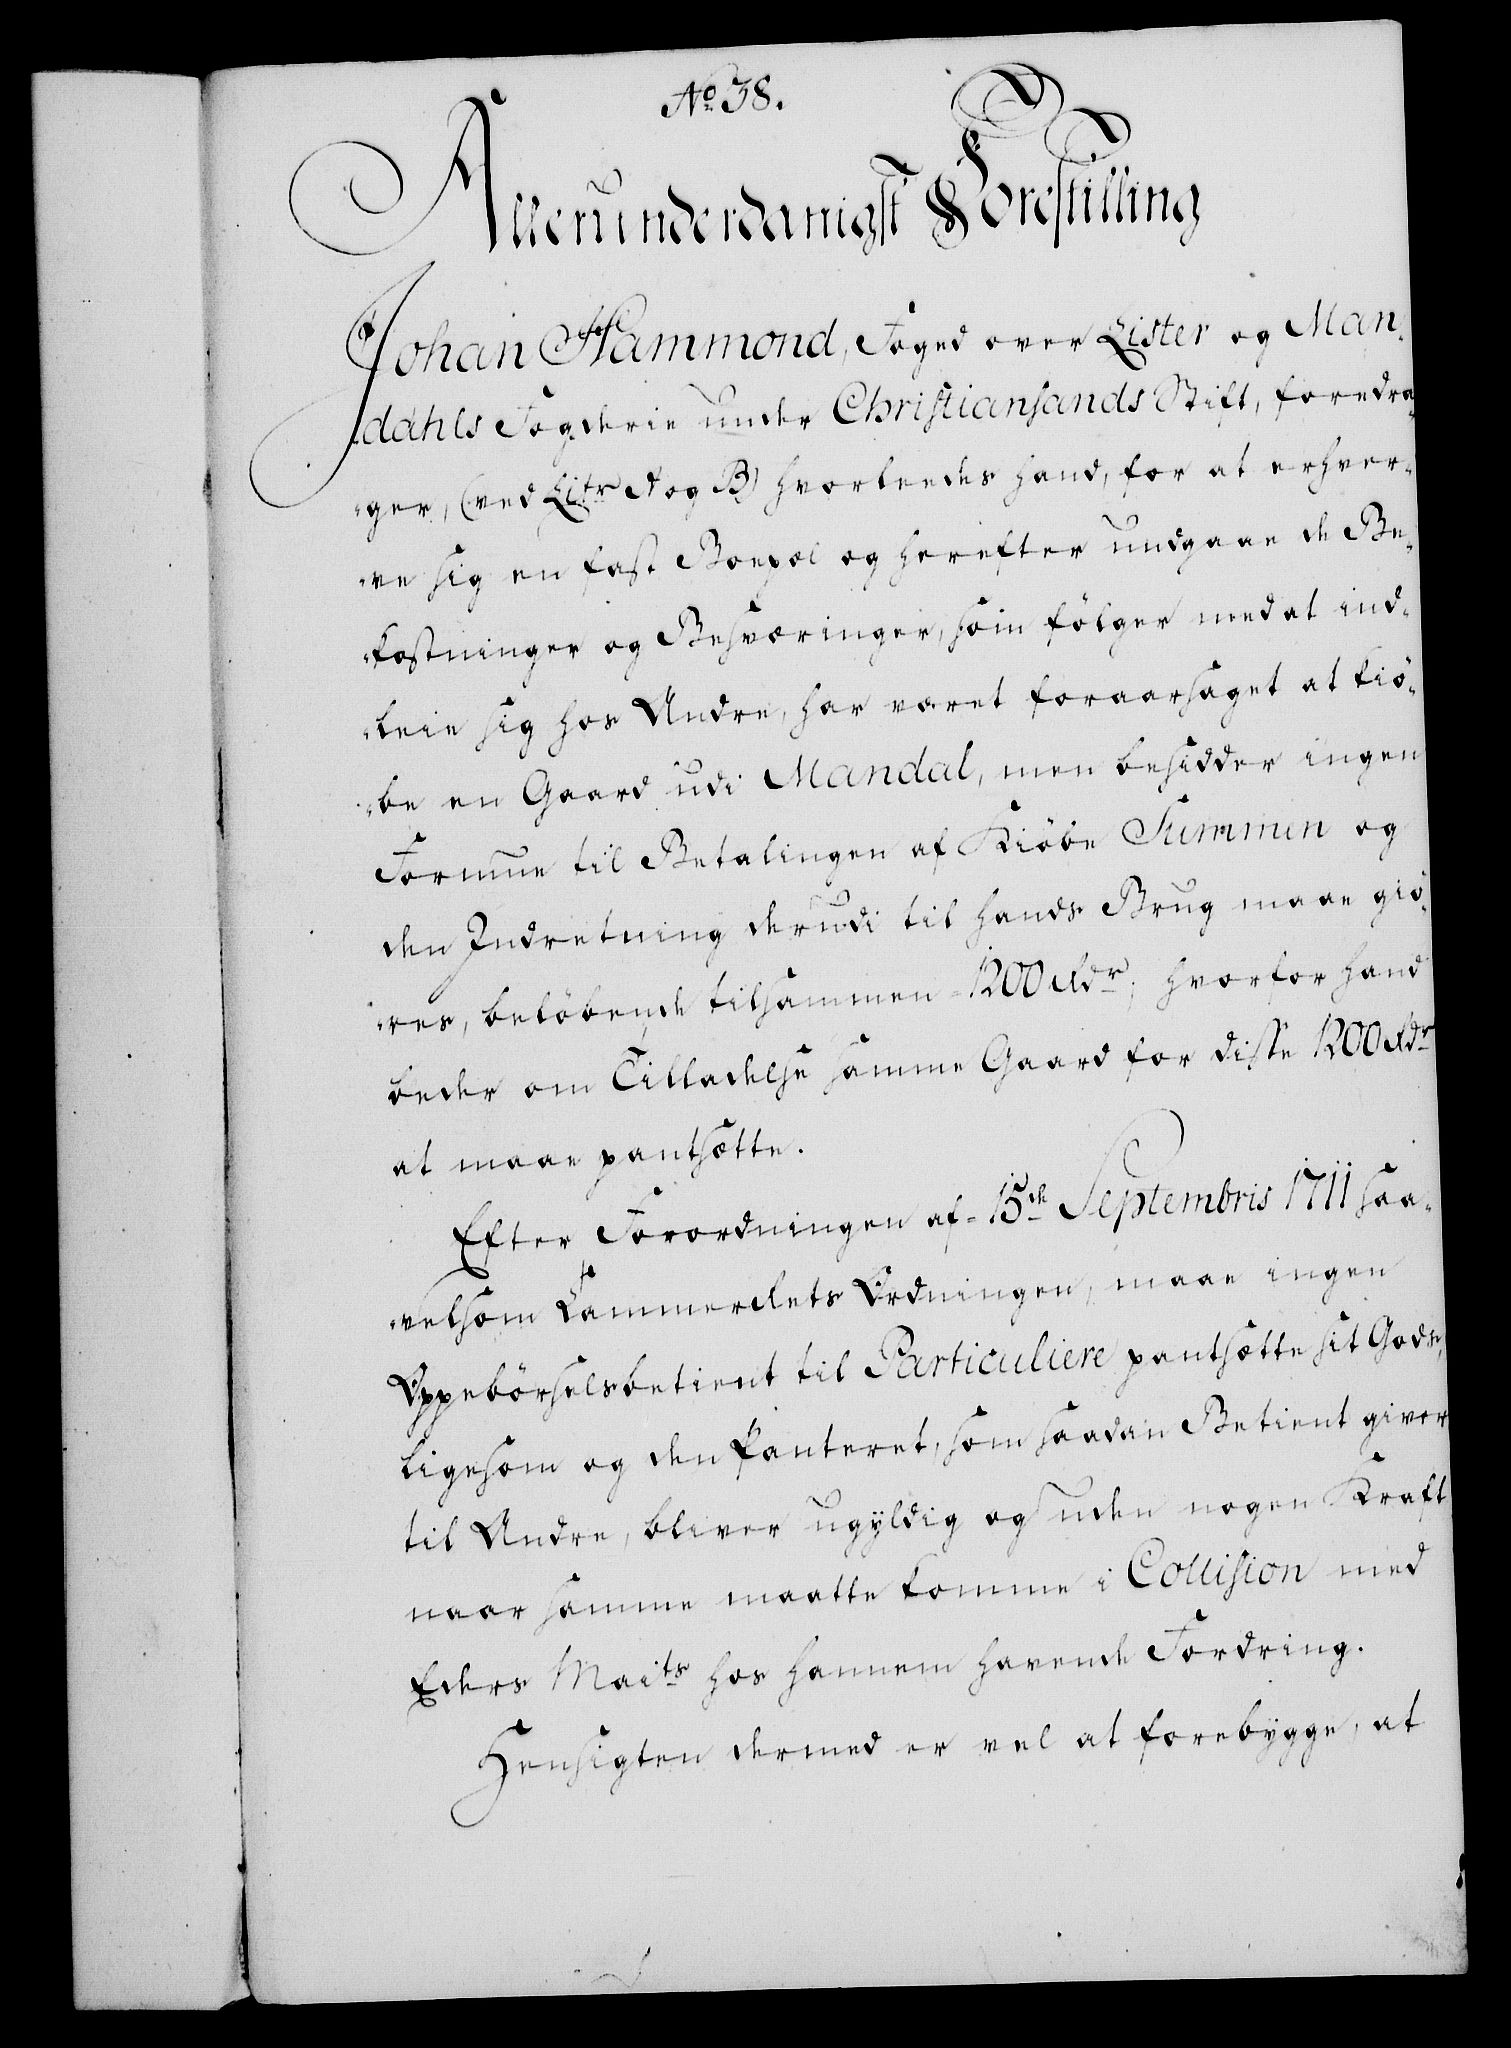 No 38.
Allerunderdanigst Forestilling
Johan Hammond, Foged over Lister og Man-
-dahls Fogderie under Christiansands Stift, foredra-
-ger, (ved Litr A og B) hvorleedes hand, for at erhver-
-ve sig en fast Boepæl og herefter undgaae de Be-
-kostninger og Besværinger, som fölger med at ind-
-leie sig hos Andre, har været foraarsaget at kiö-
-be en Gaard udi Mandal, men besidder ingen
Formue til Betalingen af Kiöbe Summen og
den Indretning derudi til hands Brug maae giö-
-res, belöbende tilsammen 1200 Rdr; hvorfor hand
beder om Tilladelse samme Gaard for disse 1200 Rdr
at maae pantsætte.
Efter Forordningen af 15de Septembris 1711 saa-
-velsom Cammer Rets Ordningen, maae ingen
Oppebörselsbetient til Particuliere pantsætte sit Gods,
ligesom og den Panteret, som saadan Betient giver
til Andre, bliver ugyldig og uden nogen Kraft
naar samme maatte komme i Collision med
Eders Maits hos hannem havende Fordring.
Hensigten dermed er vel at forebygge, at